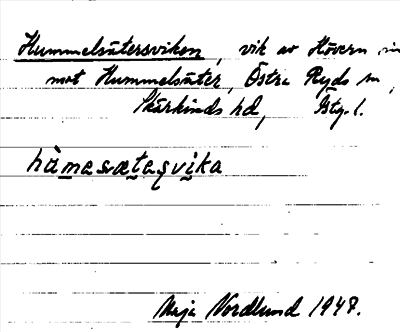 Hummelsätersviken, vik av Hövern in
mot Hummelsäter, Östra Ryds sn,
Skärkinds hd, Östg. l.
hàmesætesvika
Maja Nordlund 1947.